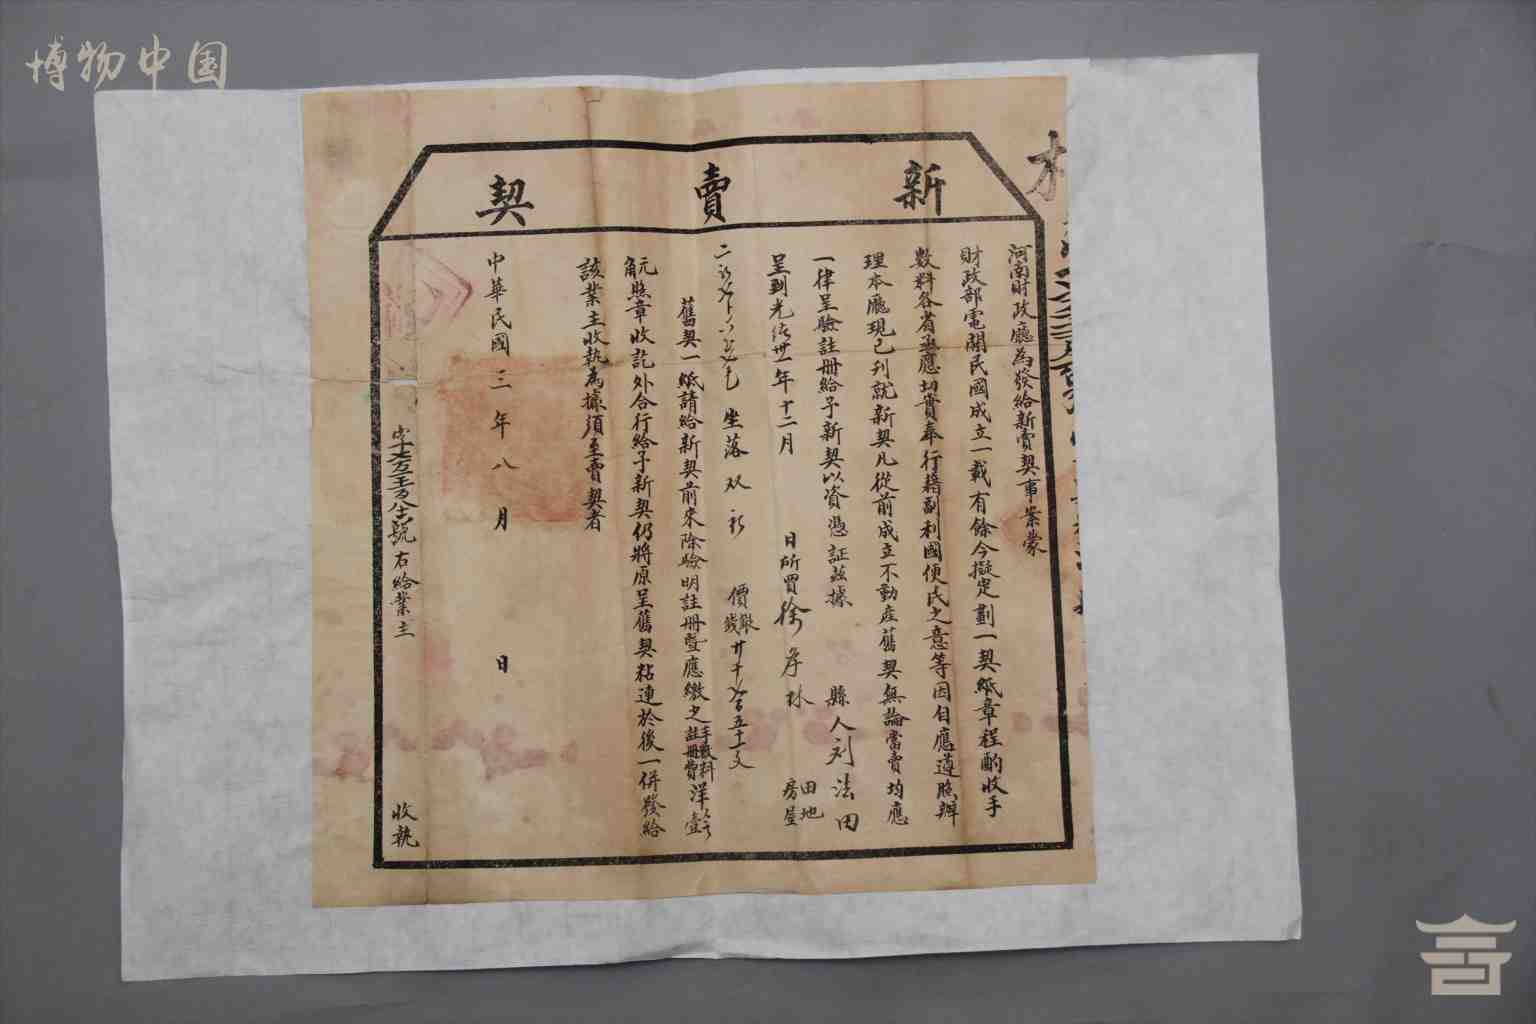 博物中国
新賣契
河南財政廳為發給新賣契事案蒙
財政部電開民國成立一載有餘今擬定劃一契紙章程酌收手
數料各省亟應切實奉行藉副利國便民之意等因自應遵照辦
理本廳現已刊就新契凡從前成立不動產舊契無論當賣均應
一律呈驗註冊給予新契以資憑証茲據 縣人刘法田
呈到光緒卅一年十二月 日所買徐 林 田地房屋
坐落双 價銀錢 廿千 百五十文
舊契一紙請給新契前來除驗明註冊暨應繳之手數料註冊費洋壹
元照章收訖外合行給予新契仍將原呈舊契粘連於後一併發給
該業主收執為據須至賣契者
中華民國三年八月 日
號右給業主 收執